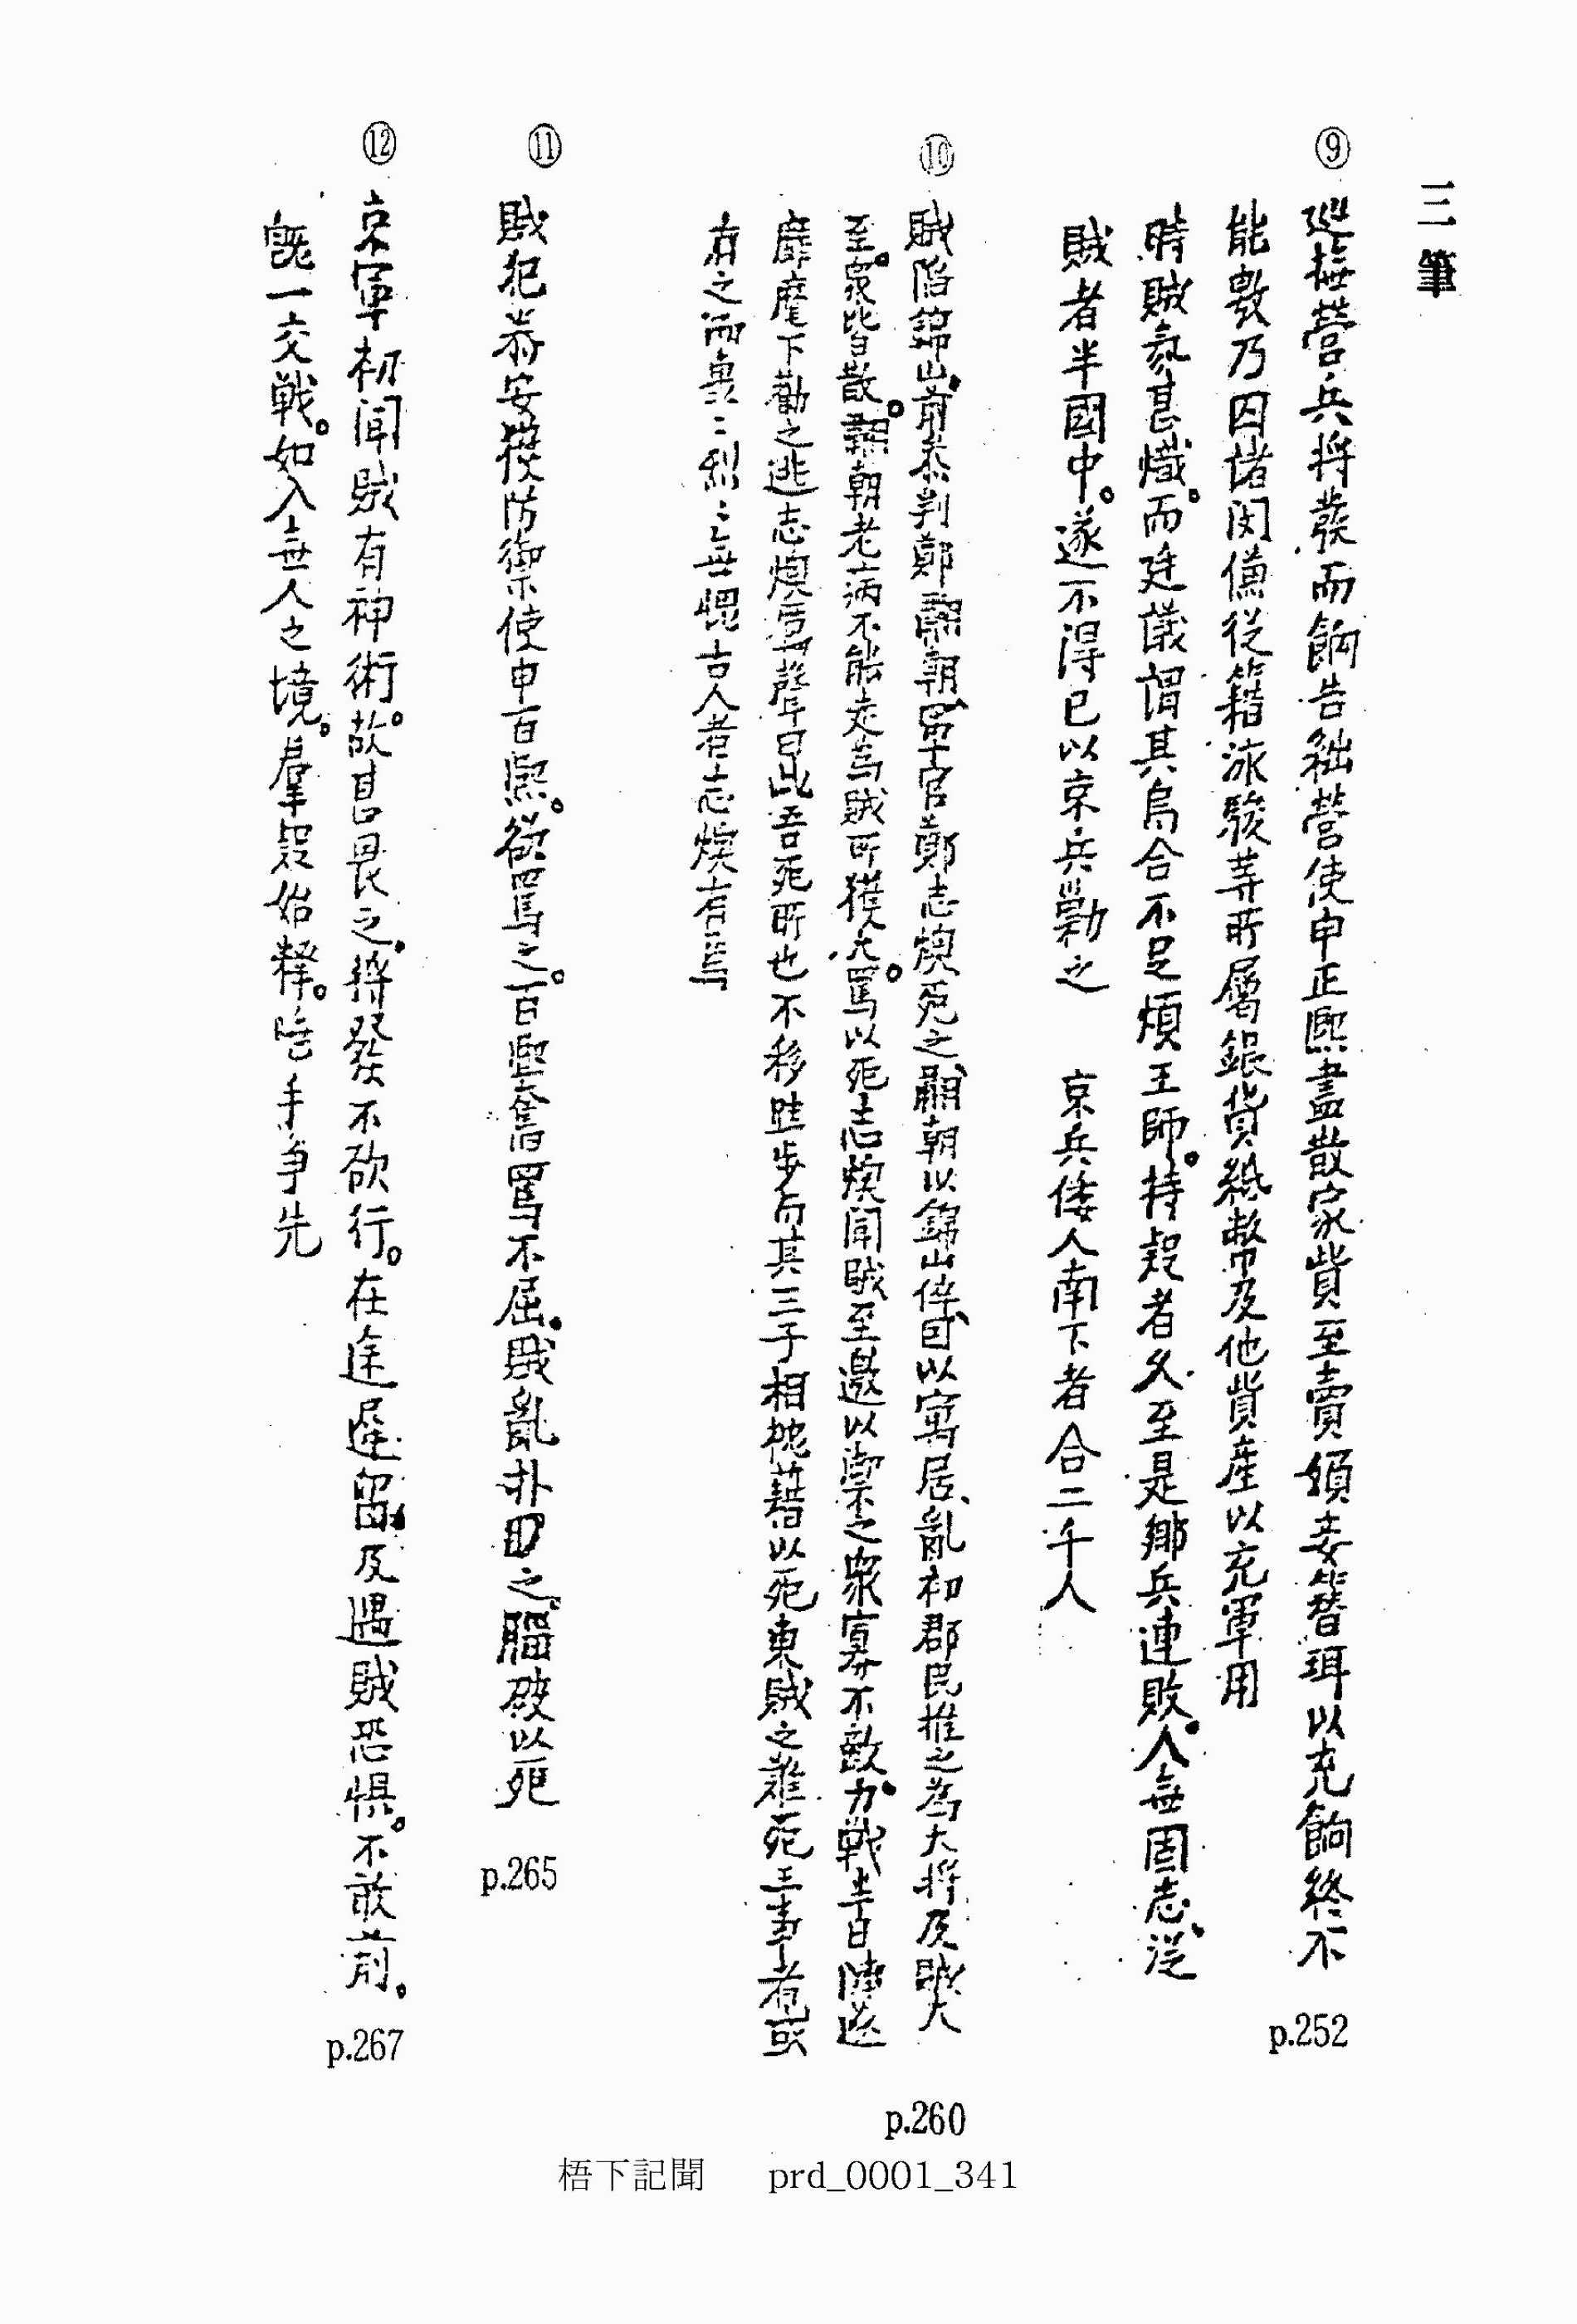 三筆
⑨
巡撫營兵將發而餉告絀營使申正熙盡散家貲至賣嬪妾簪珥以充餉終不
p.252
能敷乃囚諸閔傔從籍泳駿等所屬銀貨紙幣及他貲産以充軍用
時賊氛甚熾。而廷議謂其烏合不足煩王師。持疑者久至是鄉兵連敗、人無固志、從
賊者半國中。遂不得已以京兵勦之 京兵倭人南下者合二千人
⑩
賊陷錦山、前參判鄭朝、軍官鄭志煥死之、朝以錦山倅、因以寓居、亂初郡民推之為大將及賊大
p.260
至。衆皆散。朝老病不能走為賊所獲、大罵。以死志煥聞賊至邀以禦之衆寡不敵、力戰半日陣遂
靡麾下勸之逃志煥厲聲曰此吾死所也不移跬步与其三子相枕藉以死東賊之難死王事者或
有之而烈烈無愧古人者志煥有焉
⑪
賊犯泰安獲防禦使申百熙。欲罵之。百熙奮罵不屈、賊亂扑之、腦破以死
p.265
⑫
京軍初聞賊有神術。故甚畏之、將發不欲行。在途遲留、及遇賊恐惧。不敢前。
p.267
旣一交戰。如入無人之境。羣疑始釋。唾手争先
梧下記聞 prd_0001_341